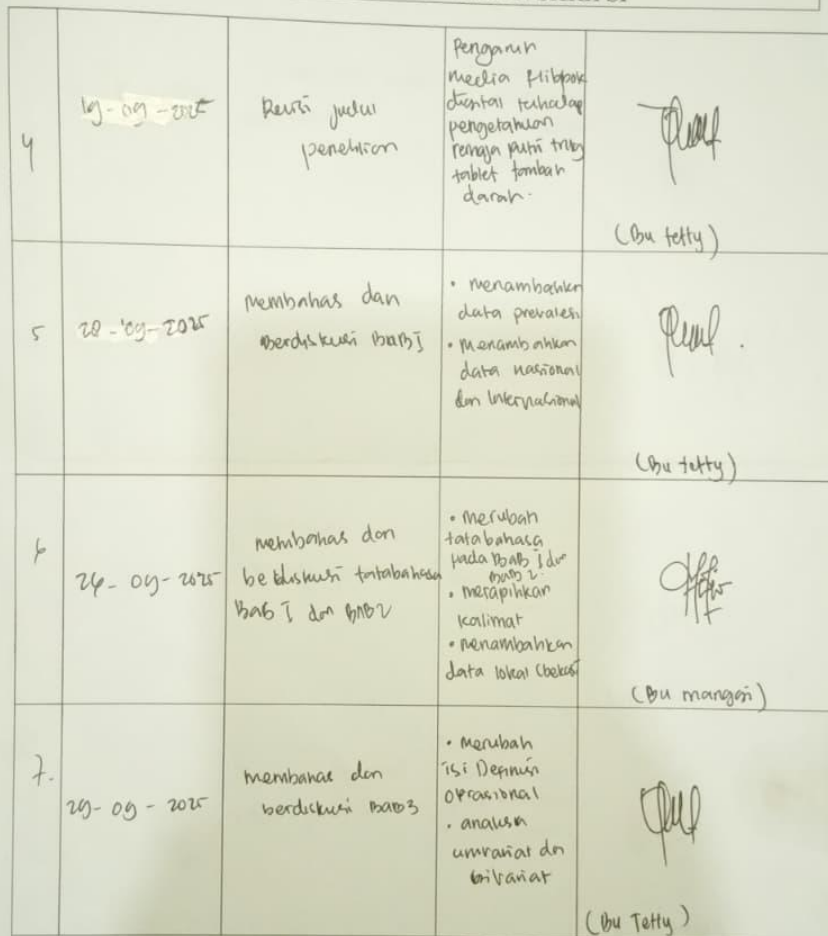 4
19-09-2025
Revisi judul
penelitian
Pengaruh
media flibpok
digital terhadap
pengetahuan
remaja putri tntng
tablet tambah
darah.
(Bu tetty)
5
28-09-2025
Membahas dan
Berdiskusi BAB I
• menambahkn
data prevalesi
• menambahkan
data nasional
dan Internasional
(Bu tetty)
6
24-09-2025
membahas dan
berdiskusi tatabahasa
BAB I dan BAB 2
• merubah
tatabahasa
pada BAB I dan
BAB 2.
• merapihkan
kalimat
• menambahkan
data lokal (bekasi
(Bu mangasi)
7.
29-09-2025
membahas dan
berdiskusi BAB 3
• Merubah
isi Definisi
Oprasional
• analisa
univariat dan
bivariat
(Bu Tetty)